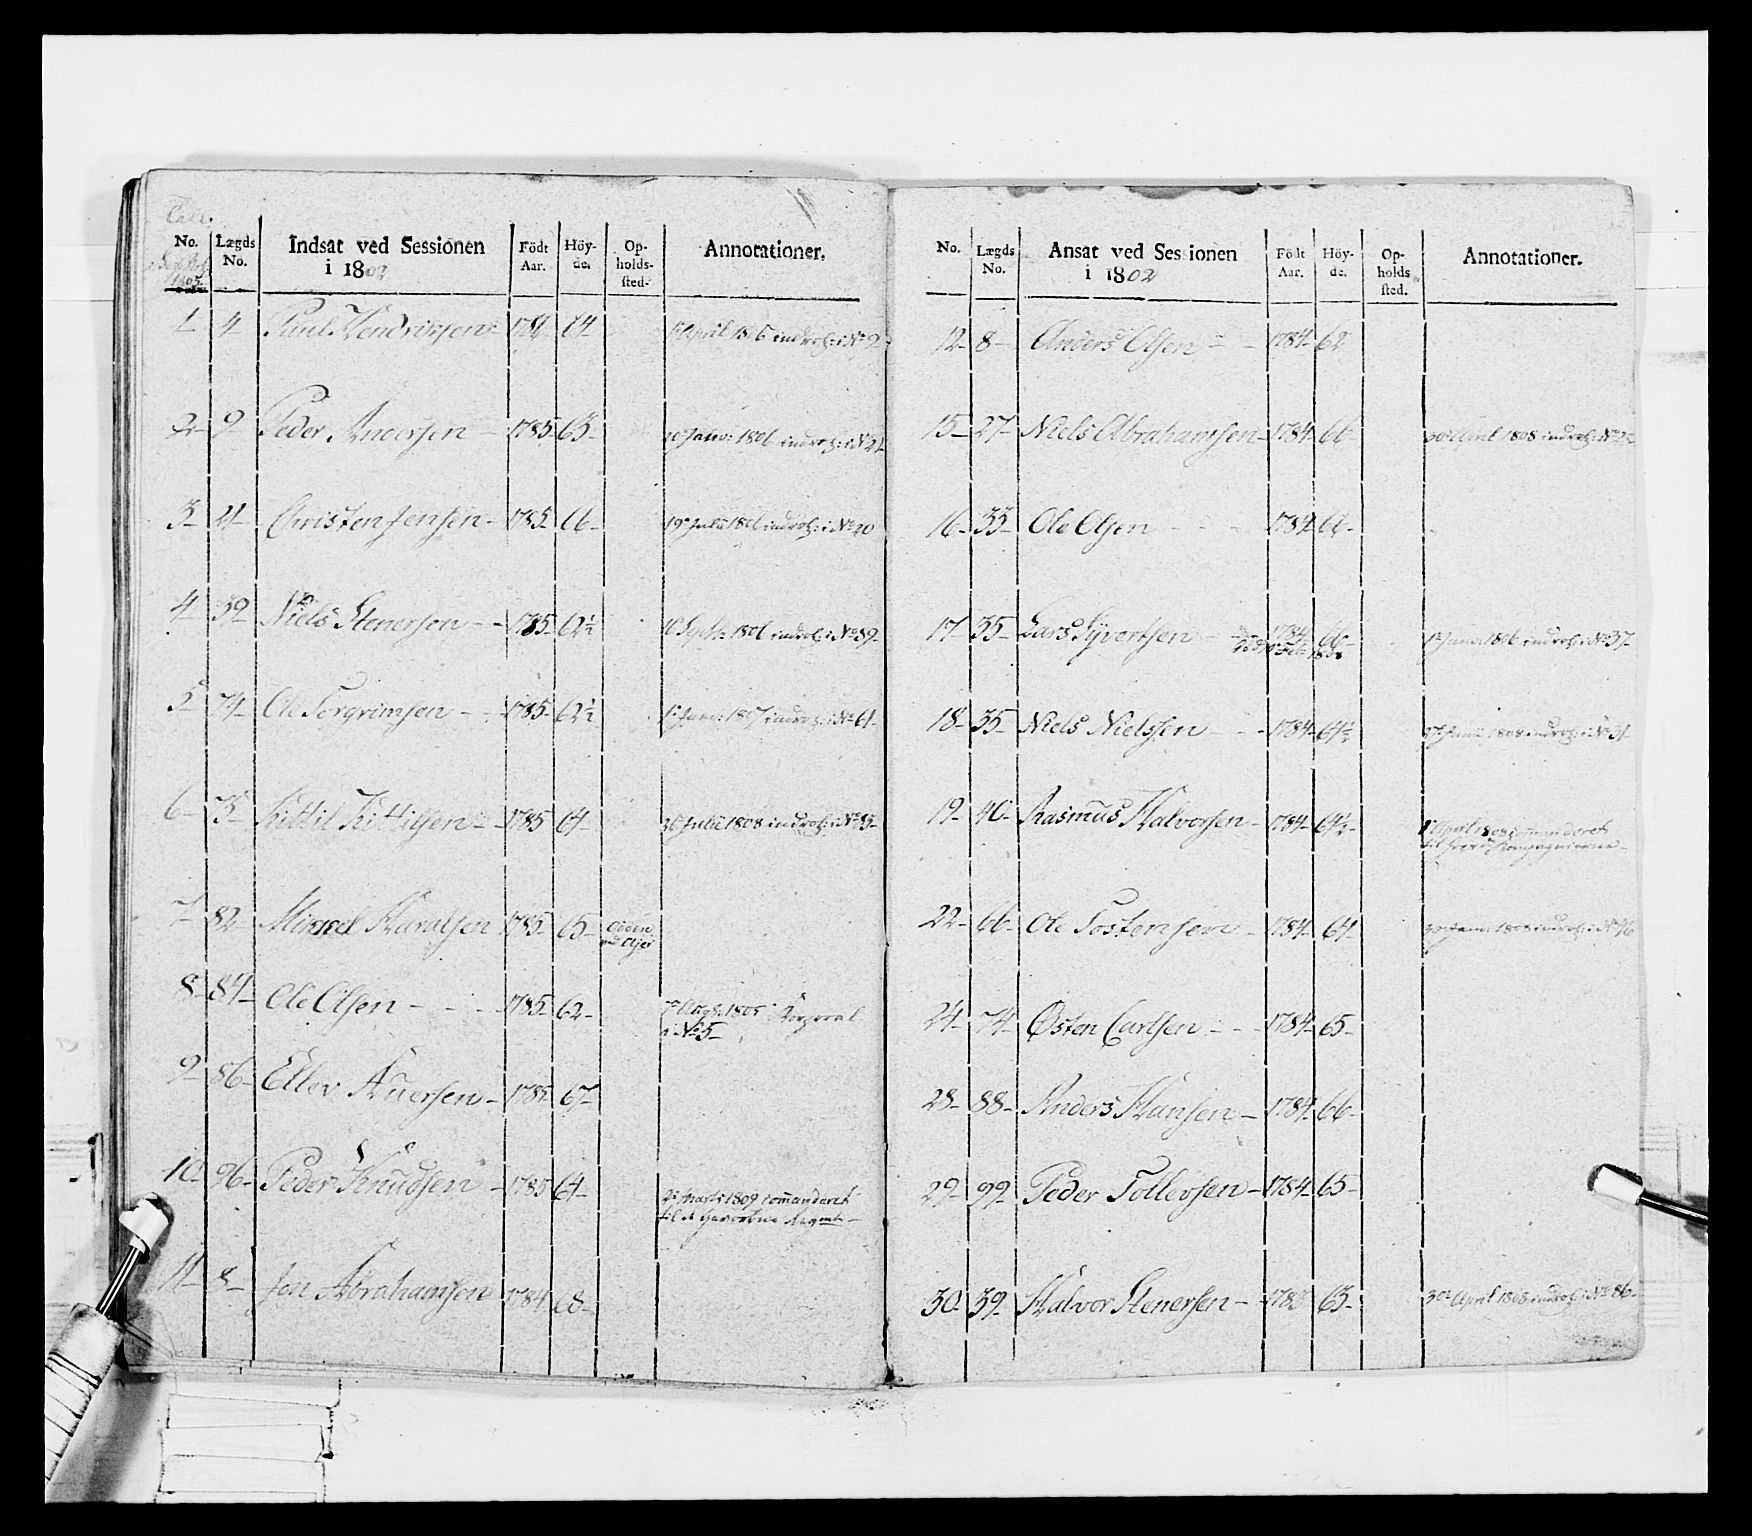 No. Lægds No. Indsat ved Sessionen i 1802 Födt Aar. Höy-de. Op-holds-sted. Annotationer.
1 4 Paul Hendrichsen 64 April 1806 indroh: i No 9
2 9 Peder Andersen 1785 63 Janv: 1806 indroh: i No 21
3 21 Christen Jensen 1785 66 19de Julii 1806 indroh: i No 20
4 39 Niels Stenersen 1785 62½ Septbr: 1806 indroh: i No 39
5 74 Ole Torgrimsen 1785 62½ 1 Janv: 1807 indroh: i No 61
6 75 Kittil Kittilsen 1785 64 Julii 1808 indroh: i No
7 82 Mikkel Haralsen 1785 65 Odden
8 84 Ole Olsen 1785 62 7de Aug: 1805 Korporal
i No 5
9 86 Ellev Auersen 1785 67
10 96 Peder Knudsen 1785 64 Marti 1809 commanderet
til
11 8 Jon Abrahamsen 1784 68
No. Lægds No. Ansat ved Sessionen i 1802 Födt Aar. Höy-de. Op-holds sted. Annotationer.
12 8 Anders Olsen 1784 62
15 27 Niels Abrahamsen 1784 66 April 1808 indroh: No
16 35 Ole Olsen 1784
17 35 Lars Syvertsen 1784 66 1 Janv: 1806 indroh: i No 37
18 35 Niels Nielsen 1784 61½ 1808 indroh: i No 31
19 40 Rasmus Halvorsen 1784 64½ 1 April 1808 commanderet
til Compagnierne
22 66 Ole Tostensen 1784 64 Janv: 1808 indroh: i No 46
24 74 Østen Carlsen 1784 65
28 88 Anders Hansen 1784 66
29 99 Peder Tollevsen 1784 65
30 39 Halvor Stenersen 1783 63 30te April 1808 indroh: i No 86